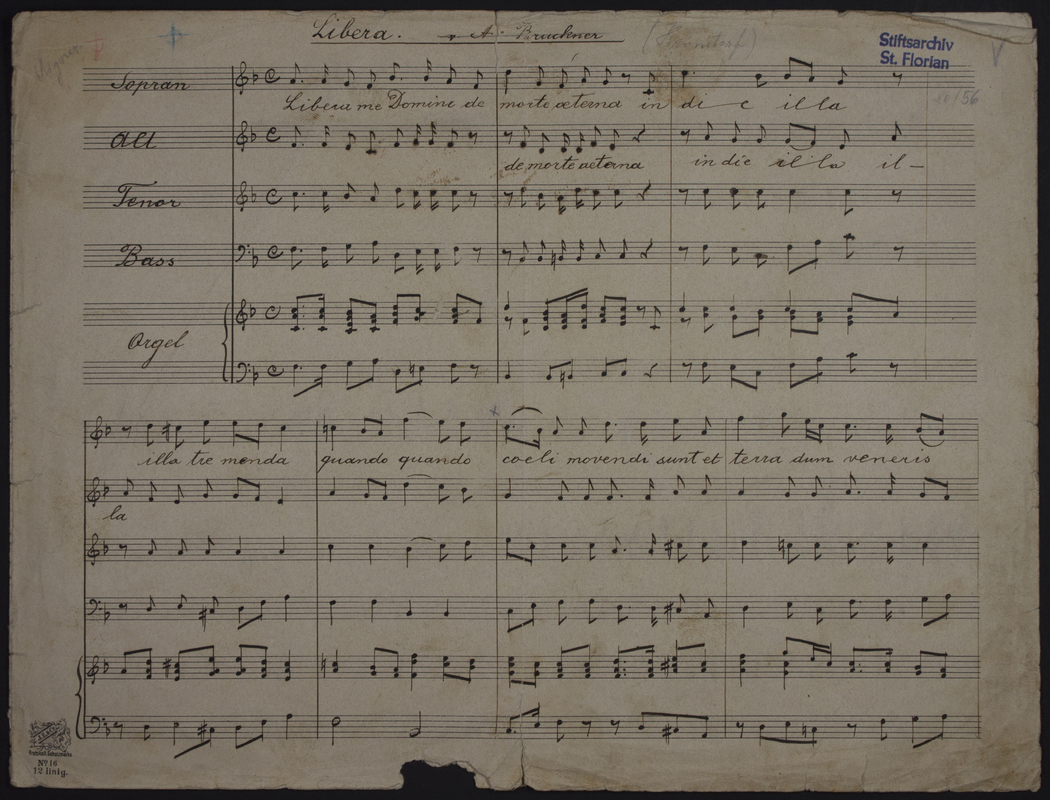 Libera. A. Bruckner
Stiftsarchiv
St. Florian
56
Sopran
Libera me Domine de morte æterna in di e illa
Alt
de morte aeterna in die illa il-
Tenor
Bass
Orgel
illa tre menda quando quando coeli movendi sunt et terra dum veneris
la
No 16
12 linig.